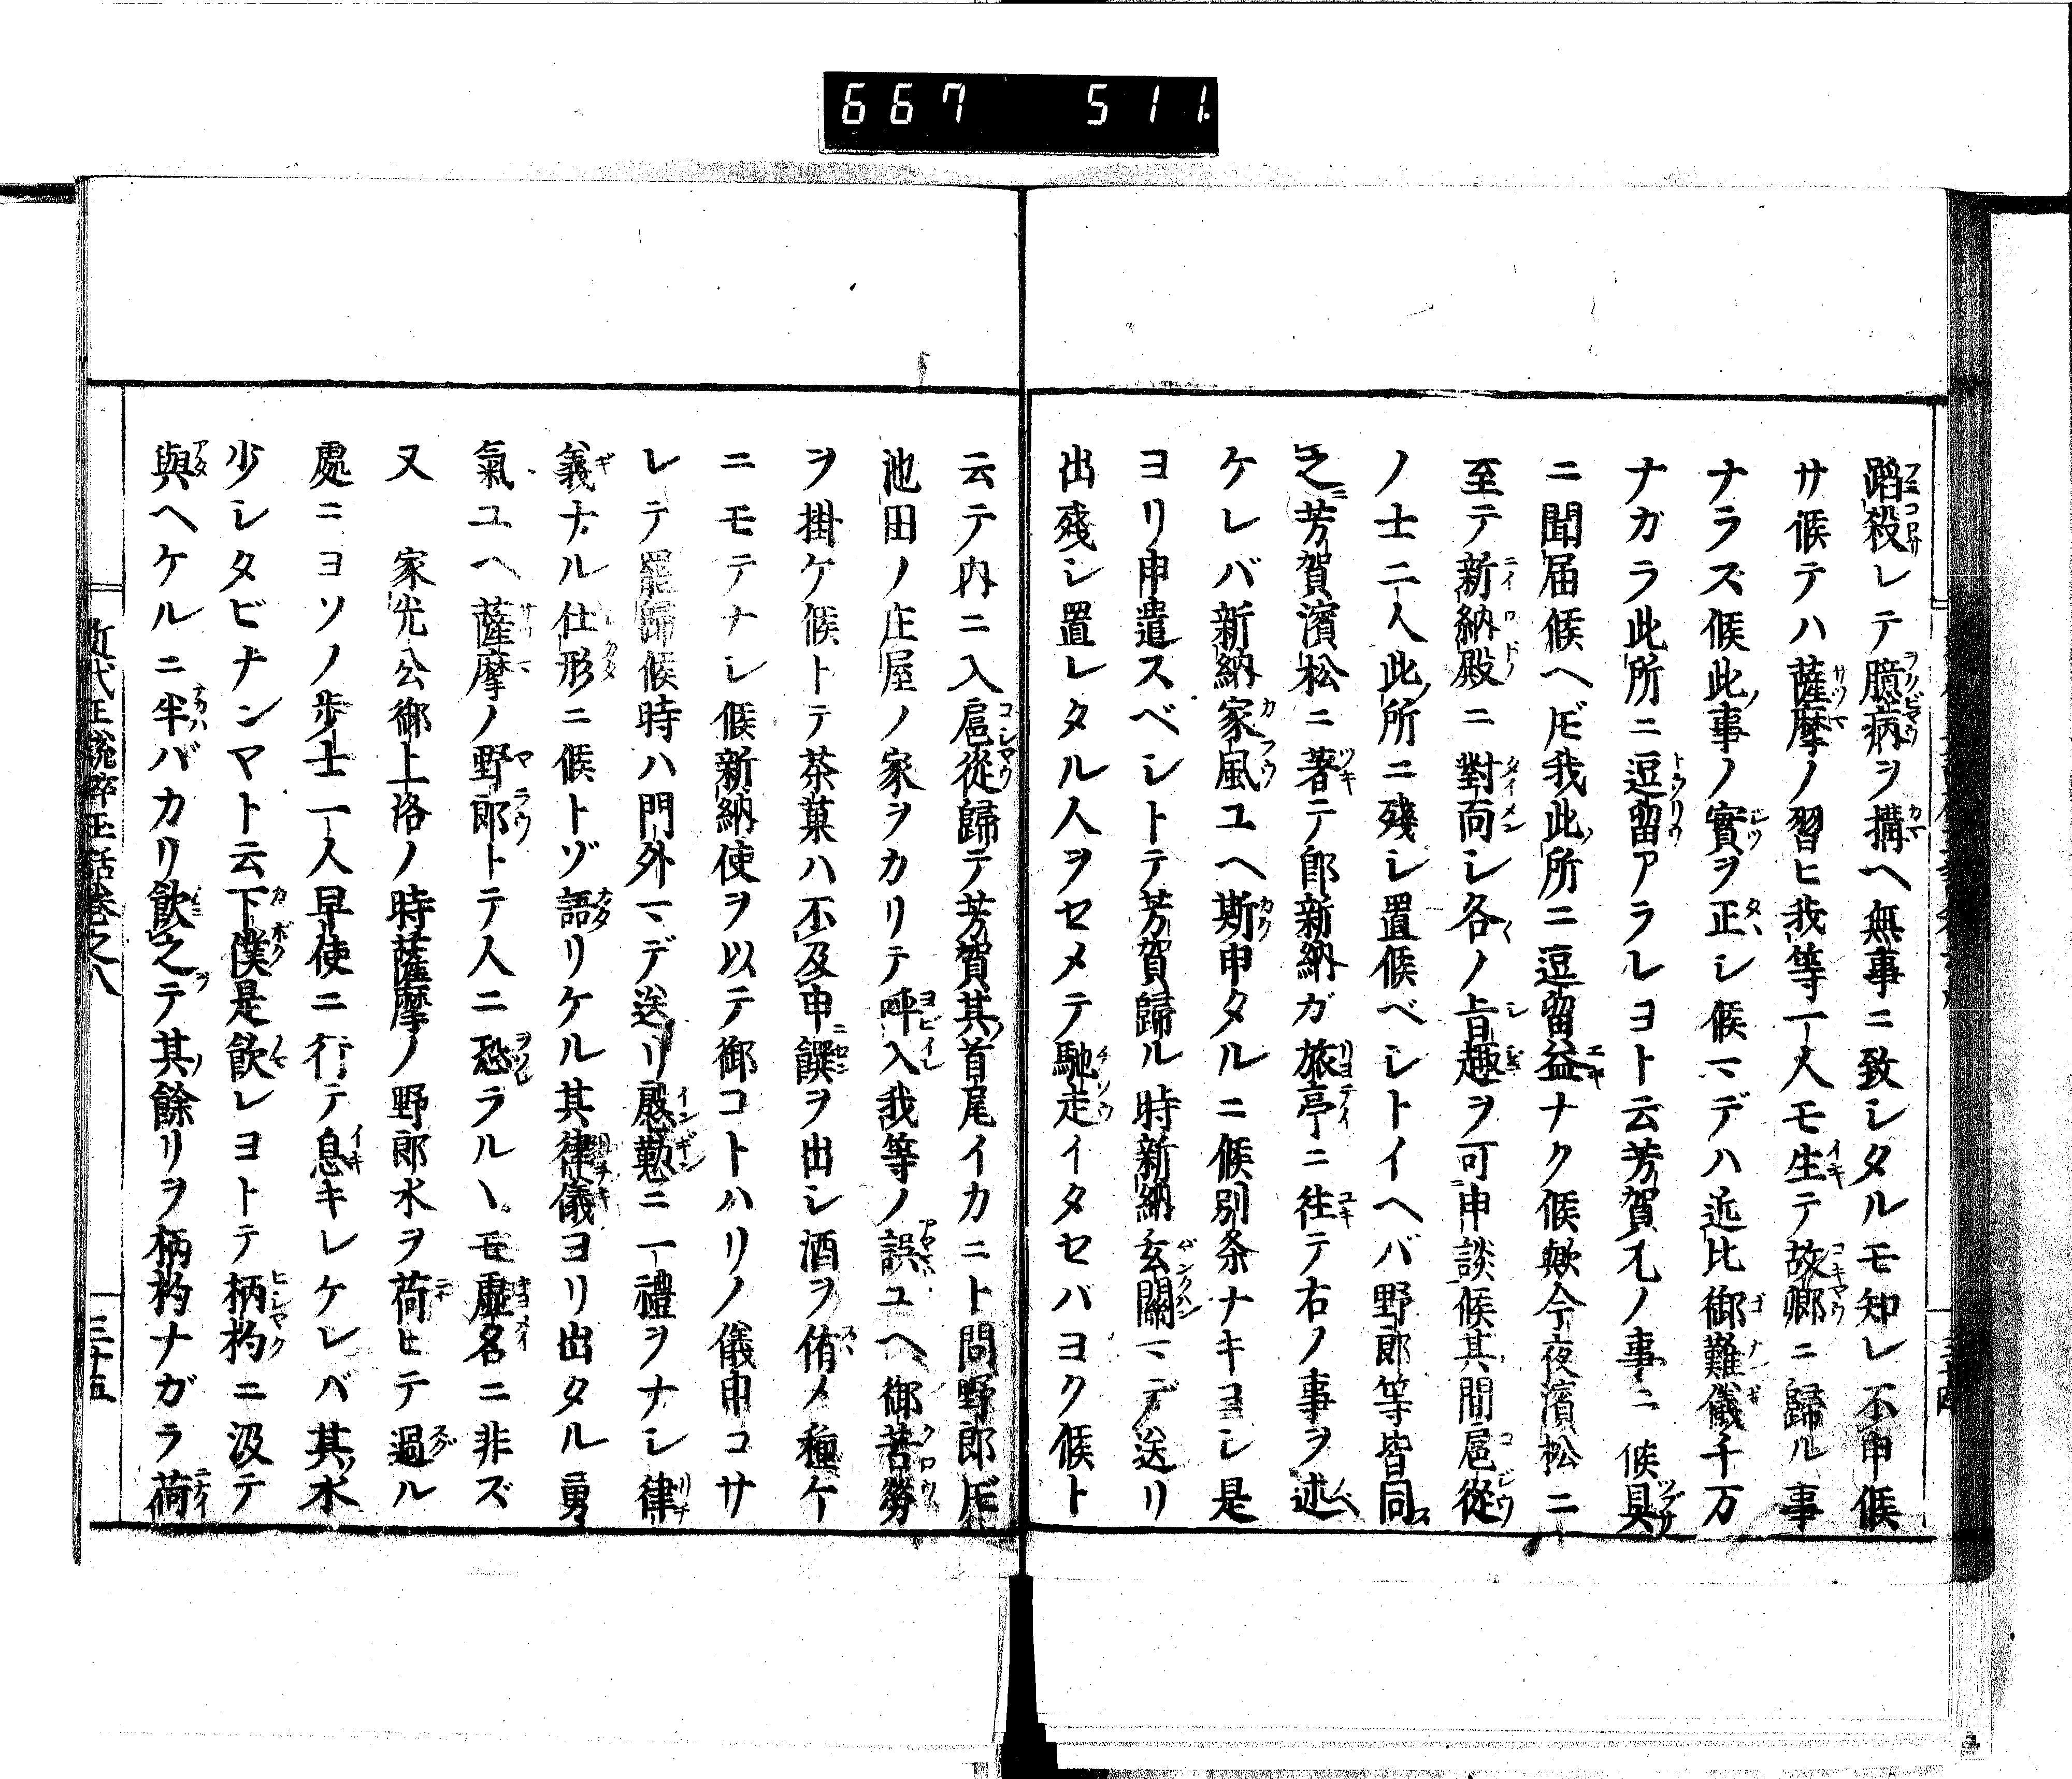 667 511.
蹈殺レテ臆病ヲ搆ヘ無事ニ致シタルモ知レ不申候
サ候テハ薩摩ノ習ヒ我等一人モ生テ故郷ニ歸ル事
ナラズ候此事ノ實ヲ正シ候マデハ近比御難儀千万
ナガラ此所ニ逗留アラレヨト云芳賀尤ノ事ニ候具
ニ聞届候ヘ𪜈我此所ニ逗留益ナク候歟今夜濱松ニ
至テ新納殿ニ對面シ各ノ旨趣ヲ可申談候其間扈從
ノ士二人此所ニ殘シ置候ベシトイヘバ野郎等皆同
之芳賀濱松ニ著テ郎新納ガ旅亭ニ往テ右ノ事ヲ述
ケレバ新納家風ユヘ斯申タルニ候別条ナキヨシ是
ヨリ申遣スベシトテ芳賀歸ル時新納玄關マデ送リ
出殘シ置レタル人ヲセメテ馳走イタセバヨク候ト
云テ内ニ入扈從歸テ芳賀其首尾イカニト問野郎𪜈
池田ノ庄屋ノ家ヲカリテ呼入我等ノ誤ユヘ御苦勞
ヲ掛ケ候トテ茶菓ハ不及申饌ヲ出シ酒ヲ侑メ種ケ
ニモテナシ候新納使ヲ以テ御コトハリノ儀申コサ
レテ罷歸候時ハ門外マデ送リ慇懃ニ一禮ヲナシ律
義ナル仕形ニ候トゾ語リケル其律儀ヨリ出タル勇
氣ユヘ薩摩ノ野郎トテ人ニ恐ラルヽモ虚名ニ非ズ
又　家光公御上洛ノ時薩摩ノ野郎水ヲ荷ヒテ過ル
處ニヨソノ歩士一人早使ニ行テ息キレケレバ其水
少シタビナンマト云下僕是飲レヨトテ柄杓ニ汲テ
與ヘケルニ半バカリ飲之テ其餘リヲ柄杓ナガラ荷
近代正説砕玉話巻之八
三十五